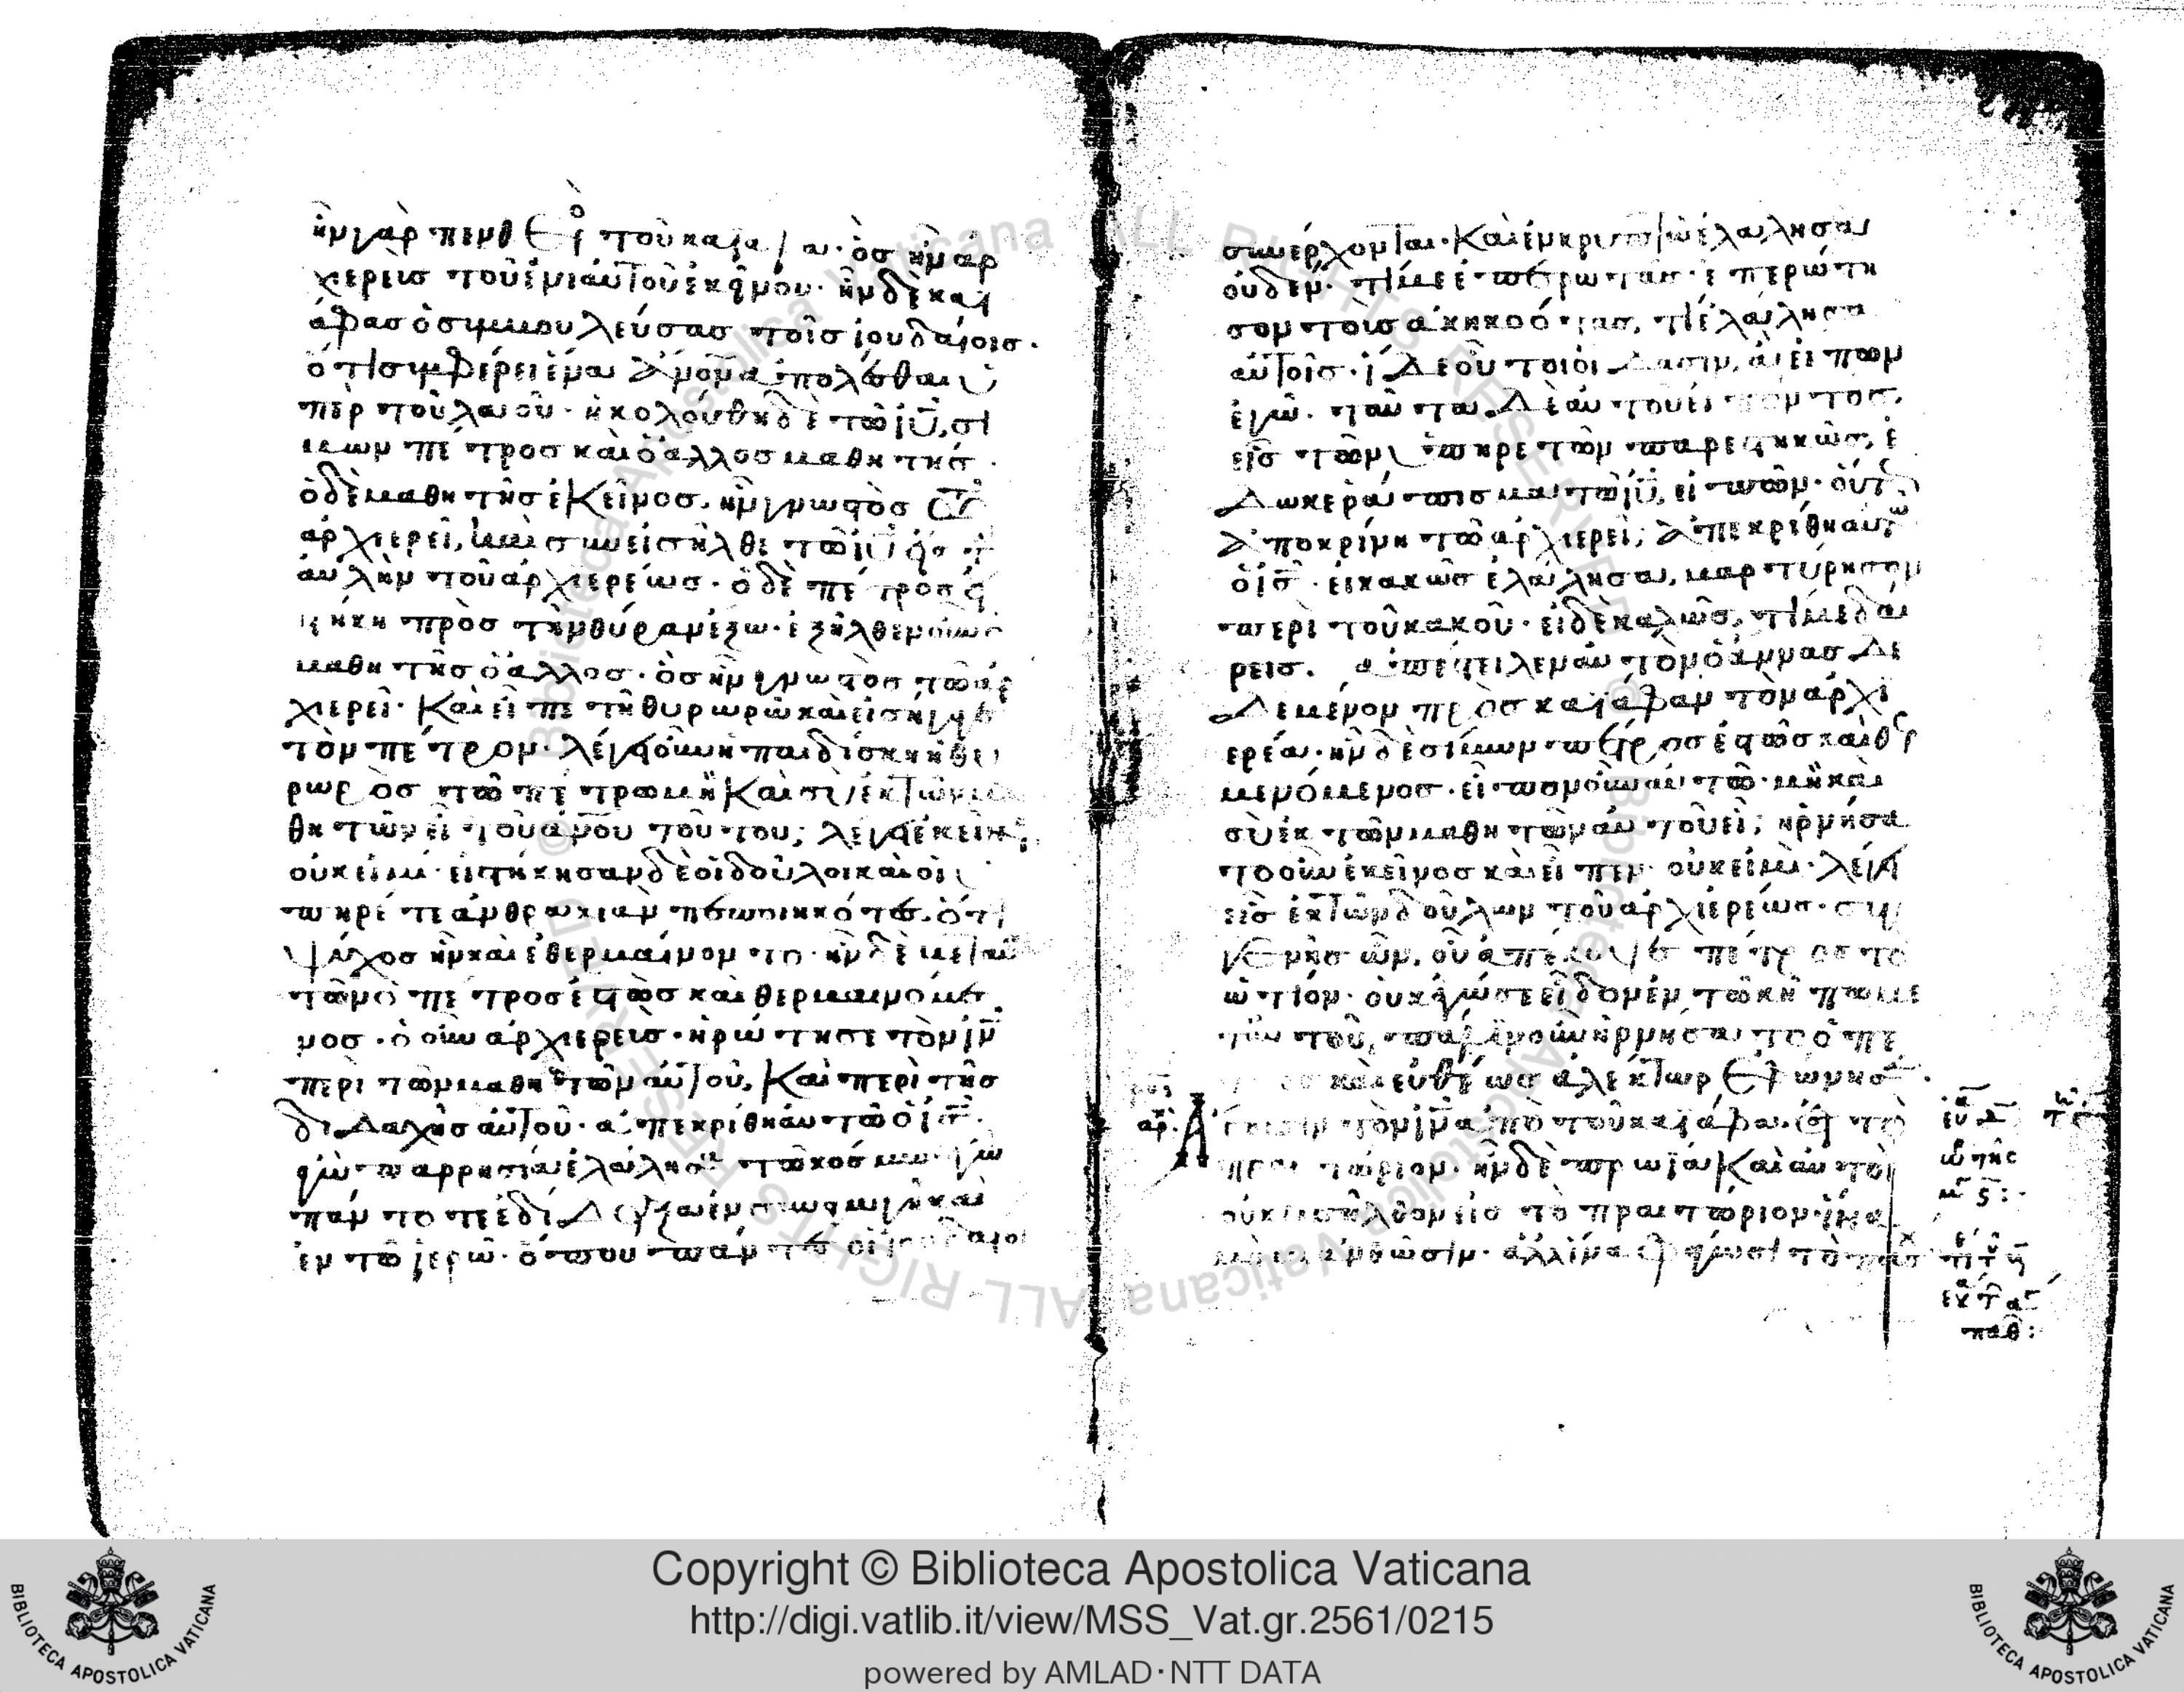 ἦν γὰρ πενθερ τοῦ καϊάφα· ὃσ ἦν ἀρ
χιερεὺσ τοῦ ἐνιαυτοῦ ἐκείνου· ἦν δὲ καϊ
άφασ ὁ συμβουλεύσασ τοῖσ ἰουδαίοισ·
ὅτι συμφέρει ἕνα ἄνον ἀπολέσθαι ὑ
πὲρ τοῦ λαοῦ· ἠκολούθει δὲ τῶ ιῦ, σί
μων πέτροσ καὶ ὁ ἄλλοσ μαθητήσ·
ὁ δὲ μαθητὴσ ἐκεῖνοσ, ἦν γνωστὸσ τῶ
ἀρχιερεῖ, καὶ συνεισῆλθε τῶ ιῦ εἰσ τ
αὐλὴν τοῦ ἀρχιερέωσ· ὁ δὲ πέτροσ εἱ
στήκει πρὸσ τὴν θύραν ἔξω· ἐξῆλθεν οὖν ὁ
μαθητὴσ ὁ ἄλλοσ· ὃσ ἦν γνωστὸσ τῶ ἀρ
χιερεῖ· καὶ εἶπε τῆ θυρωρῶ καὶ εἰσήγαγε
τὸν πέτρον· λέγει οὖν ἡ παιδίσκη ἡ θυ
ρωρὸσ τῶ πέτρω μὴ καὶ σὺ ἐκ τῶν μα
θητῶν εἶ τοῦ ἀνοῦ τούτου; λέγει ἐκεῖνοσ
οὐκ εἰμί· εἱστήκησαν δὲ οἱ δοῦλοι καὶ οἱ ὑ
πηρέται ἀνθρακιὰν πεποιηκότεσ· ὅτι
ψύχοσ ἦν καὶ ἐθερμαίνοντο· ἦν δὲ μετ αὐ
τῶν ὁ πέτροσ ἑστὼσ καὶ θερμαινόμε
νοσ· ὁ οὖν ἀρχιερεὺσ· ἠρώτησε τὸν ιν
περὶ τῶν μαθητῶν αὐτοῦ, καὶ περὶ τῆσ
διδαχῆσ αὐτοῦ· ἀπεκρίθη αὐτῶ ὁ ισ·
ἐγὼ παρρησία ἐλάλησα τῶ κόσμω· ἐγὼ
πάντοτε ἐδίδαξα ἐν συναγωγῆ καὶ
ἐν τῶ ἱερῶ· ὅπου πάντεσ οἱ ἰουδαῖοι
συνέρχονται· καὶ ἐν κρυπτῶ ἐλάλησα
οὐδέν· τί με ἐπερωτᾶσ· ἐπερώτη
σον τοὺσ ἀκηκοότασ, τί ἐλάλησα
αὐτοῖσ· ἴδε οὗτοι οἴδασιν, ἃ εἶπον
ἐγώ· ταῦτα δὲ αὐτοῦ εἰπόντοσ,
εἷσ τῶν ὑπηρετῶν παρεστηκὼσ, ἔ
δωκε ῥάπισμα τῶ ιῦ, εἰπών· οὕτωσ
ἀποκρίνη τῶ ἀρχιερεῖ; ἀπεκρίθη αὐτῶ
ὁ ισ· εἰ κακῶσ ἐλάλησα, μαρτύρησον
περὶ τοῦ κακοῦ· εἰ δὲ καλῶσ, τί με δέ
ρεισ. ἀπέστειλεν αὐτὸν ὁ ἄννασ δε
δεμένον πρὸσ καϊάφαν τὸν ἀρχι
ερέα· ἦν δὲ σίμων πέτροσ ἑστὼσ καὶ θερ
μενόμενοσ· εἶπον οὖν αὐτῶ· μὴ καὶ
σὺ ἐκ τῶν μαθητῶν αὐτοῦ εἶ; ἠρνήσα
το οὖν ἐκεῖνοσ καὶ εἶπεν· οὐκ εἰμί· λέγει
εἷσ ἐκ τῶν δούλων τοῦ ἀρχιερέωσ· συγ
γενὴσ ὤν, οὗ ἀπέκοψε πέτροσ τὸ
ὠτίον· οὐκ ἐγώ σε εἶδον ἐν τῶ κήπω με
τ αὐτοῦ, πάλιν οὖν ἠρνήσατο ὁ πέ
τροσ καὶ εὐθέωσ ἀλέκτωρ ἐφώνησε·
Ἄγουσιν τὸν ιν ἀπὸ τοῦ καϊάφα· εἰσ τὸ
πραιτώριον· ἦν δὲ πρωΐα καὶ αὐτοὶ
οὐκ εἰσῆλθον εἰσ τὸ πραιτώριον· ἵνα
μὴ μιανθῶσιν· ἀλλ ἵνα φάγωσι τὸ πάσχα